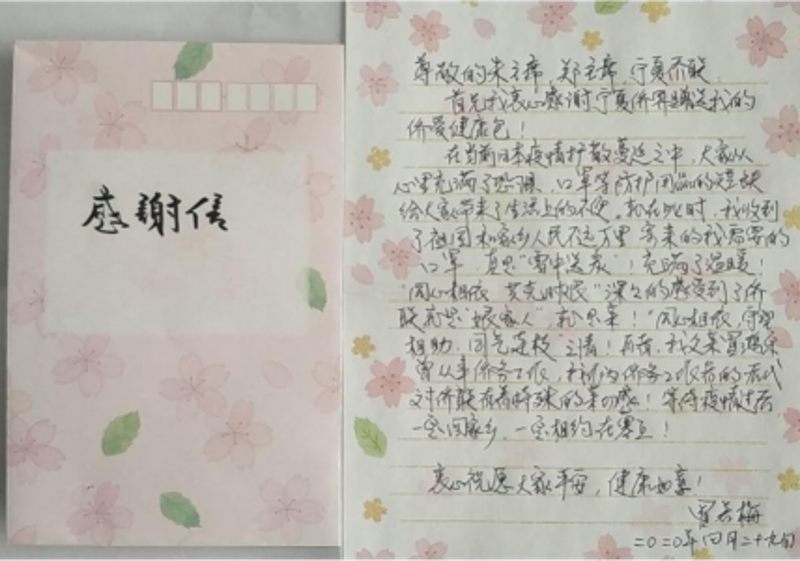 感謝信
尊敬的朱主席,郑主席,宁夏侨联
首先我衷心感谢宁夏侨界赠送我的
侨爱健康包!
在当前日本疫情扩散蔓延之中,大家从
心里充满了恐惧、口罩等防护用品的短缺
给大家带来了生活上的不便。就在此时,我收到
了祖国和家乡人民不远万里寄来的我需要的
口罩,真是“雪中送炭”!充满了温暖!
“同心相依 共克时艰”深久的感受到了侨
联就是“娘家人”,就是亲!“同心相依,守望
相助,同气连枝”之情!再者,我父亲
曾从事侨务工作,我
对侨联有着特殊的亲切感!等待疫情过后
一定回家乡,一定相约在塞上!
衷心祝愿大家平安,健康如意!
二〇二〇年四月二十九日